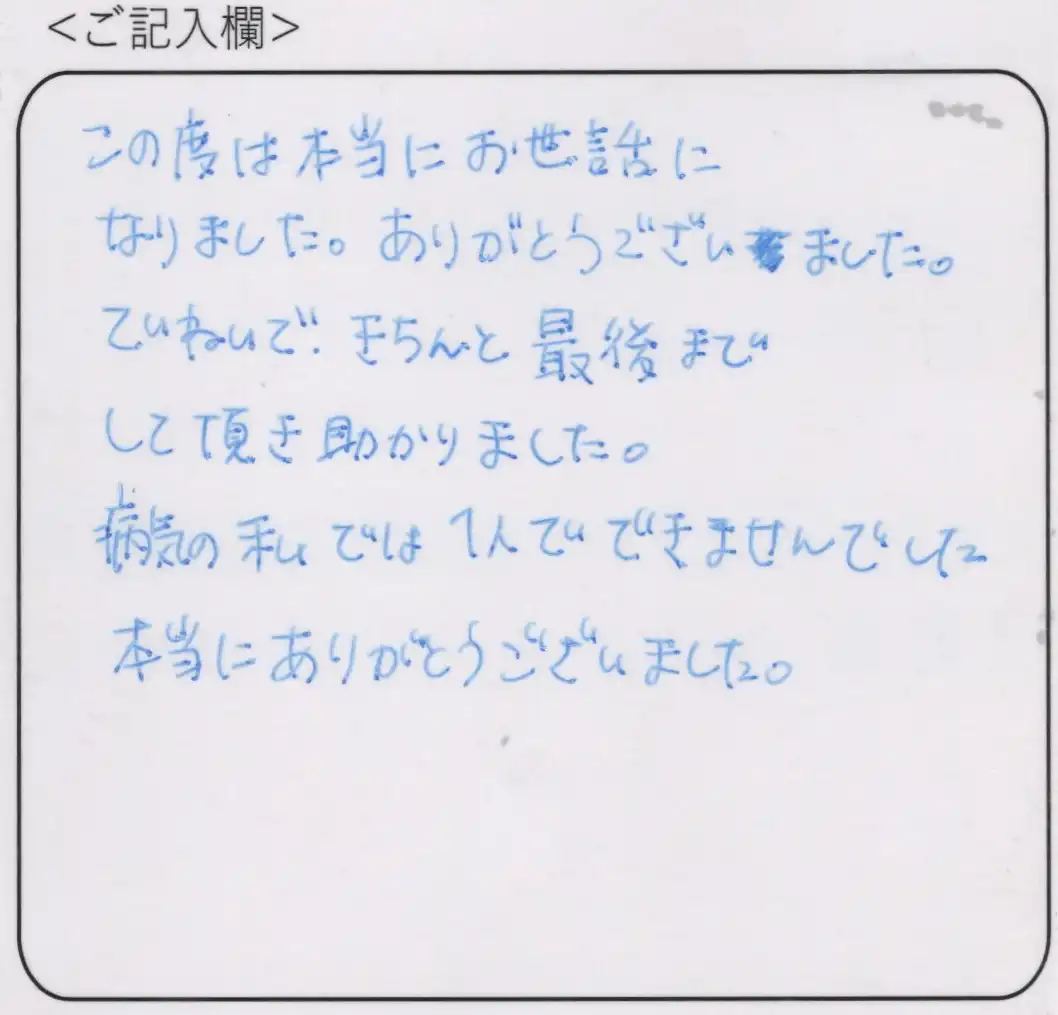 <ご記入欄>
この度は本当にお世話に
なりました。ありがとうございました。
ていねいで、きちんと最後まで
して頂き助かりました。
病気の私では1人でできませんでした
本当にありがとうございました。